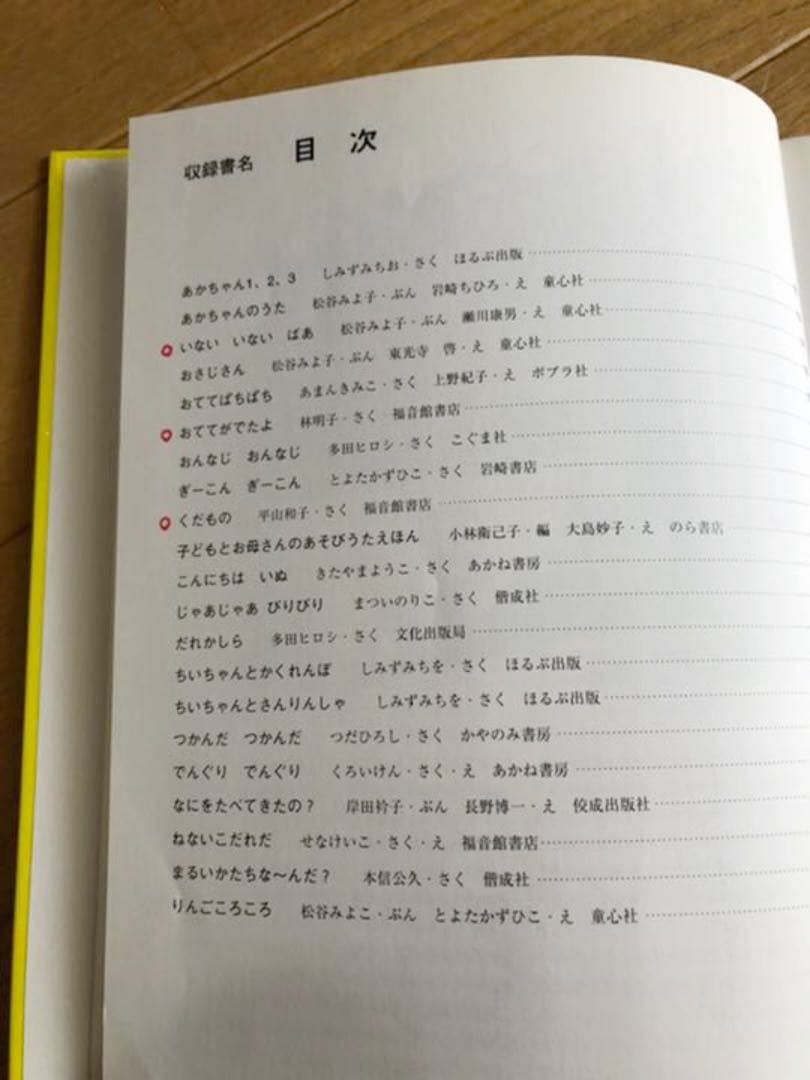 収録書名　目次
あかちゃん1、2、3　しみずみちお・さく　ほるぷ出版
あかちゃんのうた　松谷みよ子・ぶん　岩崎ちひろ・え　童心社
いない　いない　ばあ　松谷みよ子・ぶん　瀬川康男・え　童心社
おさじさん　松谷みよ子・ぶん　東光寺　啓・え　童心社
おててぱちぱち　あまんきみこ・さく　上野紀子・え　ポプラ社
おててがでたよ　林明子・さく　福音館書店
おんなじ　おんなじ　多田ヒロシ・さく　こぐま社
ぎーこん　ぎーこん　とよたかずひこ・さく　岩崎書店
くだもの　平山和子・さく　福音館書店
子どもとお母さんのあそびうたえほん　小林衛己子・編　大島妙子・え　のら書店
こんにちは　いぬ　きたやまようこ・さく　あかね書房
じゃあじゃあ びりびり　まついのりこ・さく　偕成社
だれかしら　多田ヒロシ・さく　文化出版局
ちいちゃんとかくれんぼ　しみずみちを・さく　ほるぷ出版
ちいちゃんとさんりんしゃ　しみずみちを・さく　ほるぷ出版
つかんだ　つかんだ　つだひろし・さく　かやのみ書房
でんぐり　でんぐり　くろいけん・さく・え　あかね書房
なにをたべてきたの？　岸田衿子・ぶん　長野博一・え　佼成出版社
ねないこだれだ　せなけいこ・さく・え　福音館書店
まるいかたちな〜んだ？　本信公久・さく　偕成社
りんごころころ　松谷みよこ・ぶん　とよたかずひこ・え　童心社